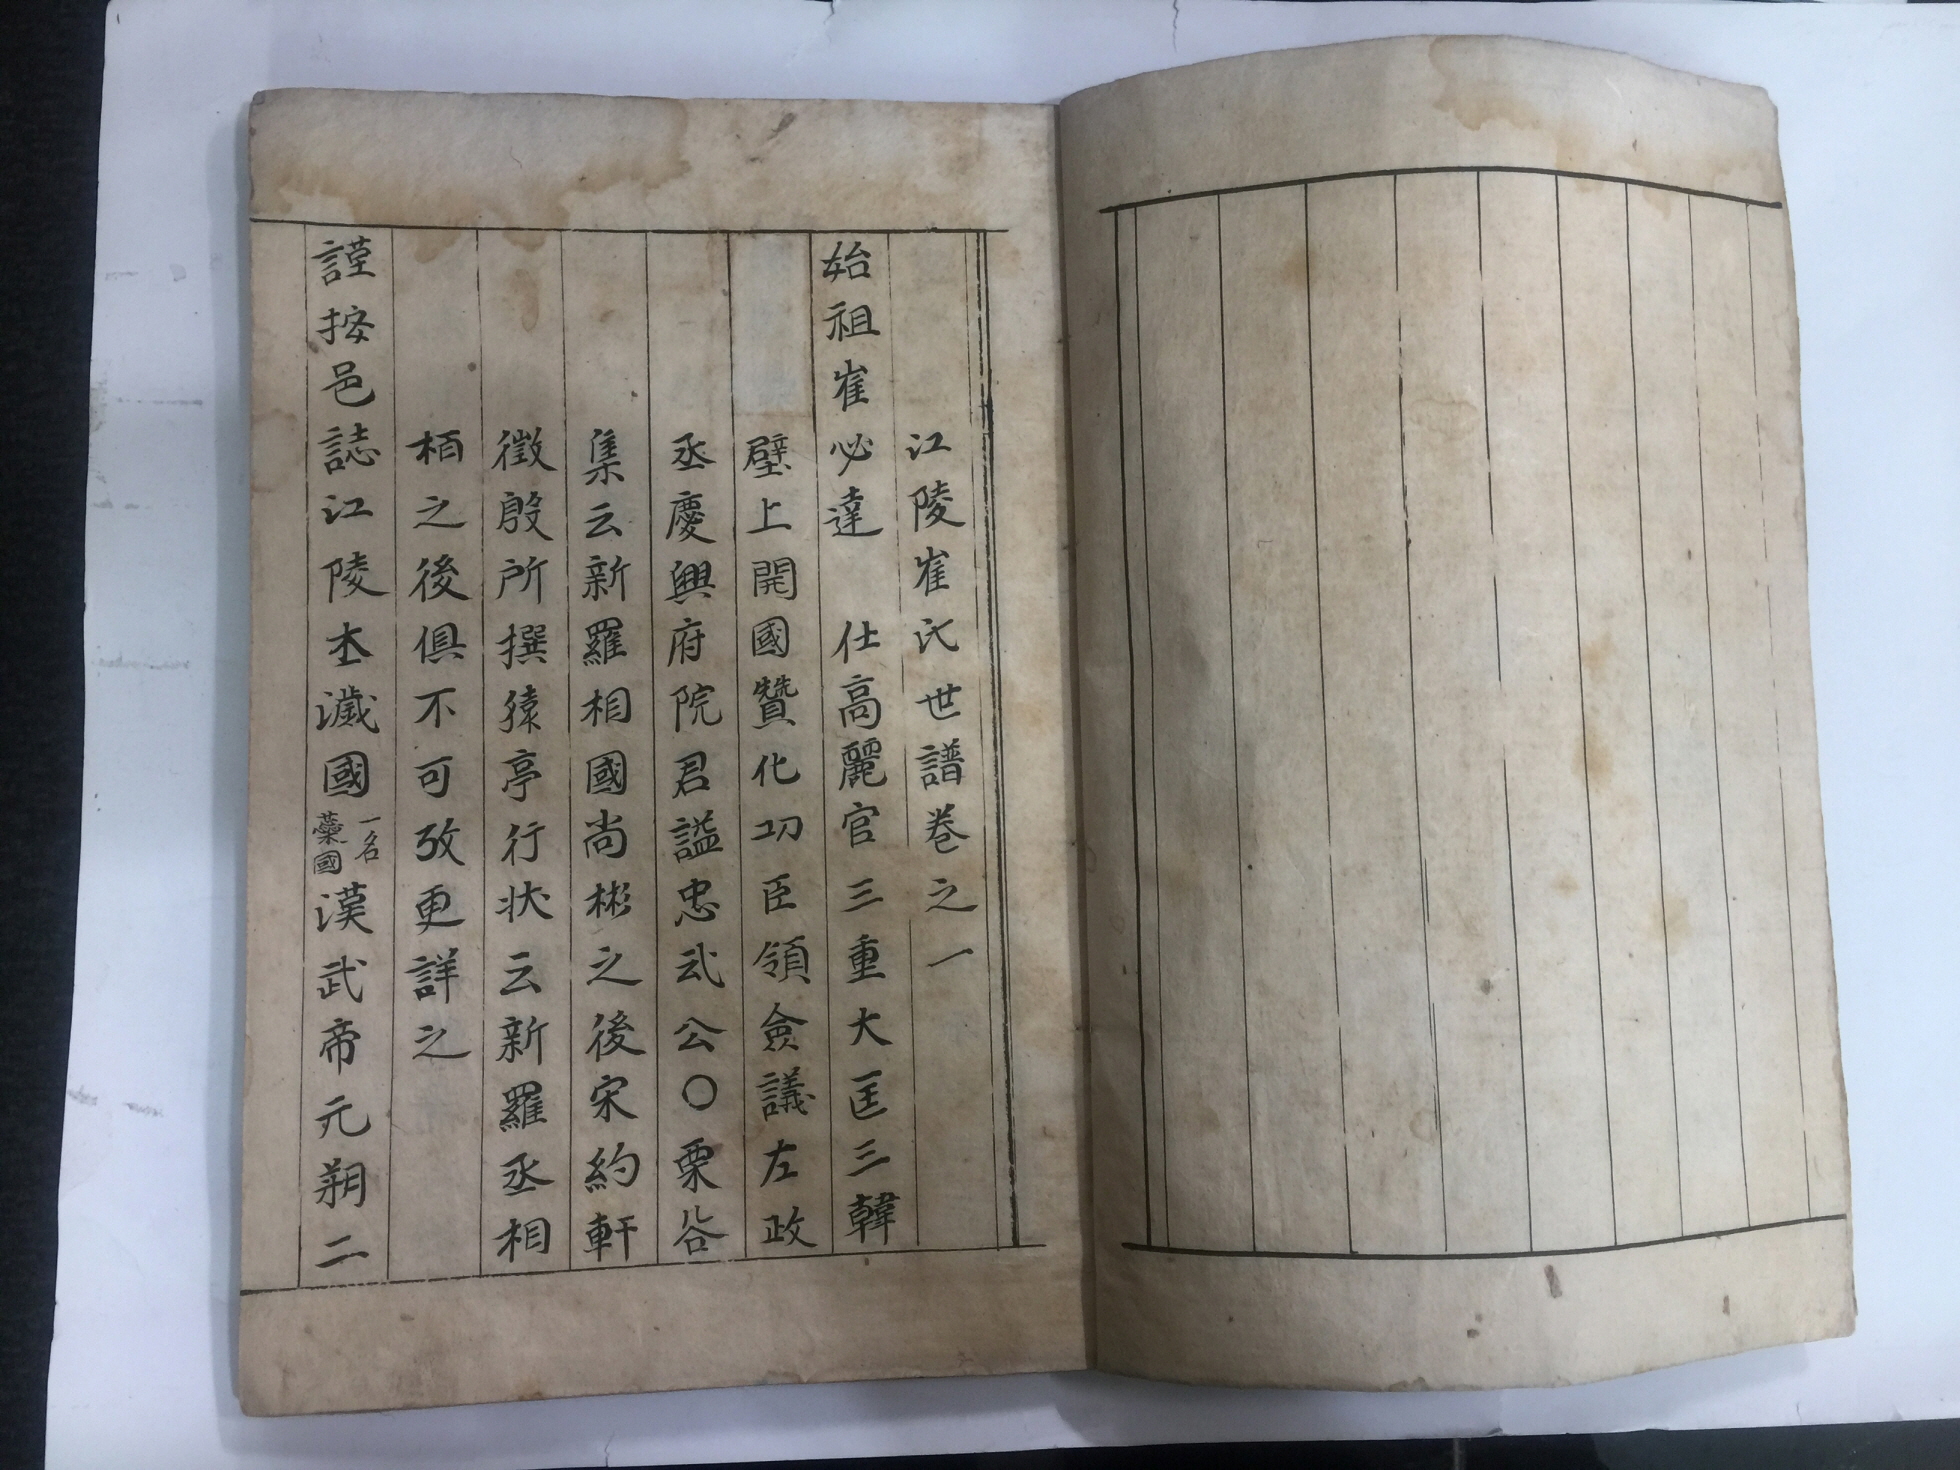 江陵崔氏世譜卷之一
始祖崔必達 仕高麗官三重大匡三韓
壁上開國贊化功臣領僉議左政
丞慶興府院君謚忠武公○栗谷
集云新羅相國尚彬之後宋約軒
徵殷所撰猿亭行状云新羅丞相
栢之後俱不可攷更詳之
謹按邑誌江陵本濊國一名蘂國漢武帝元朔二